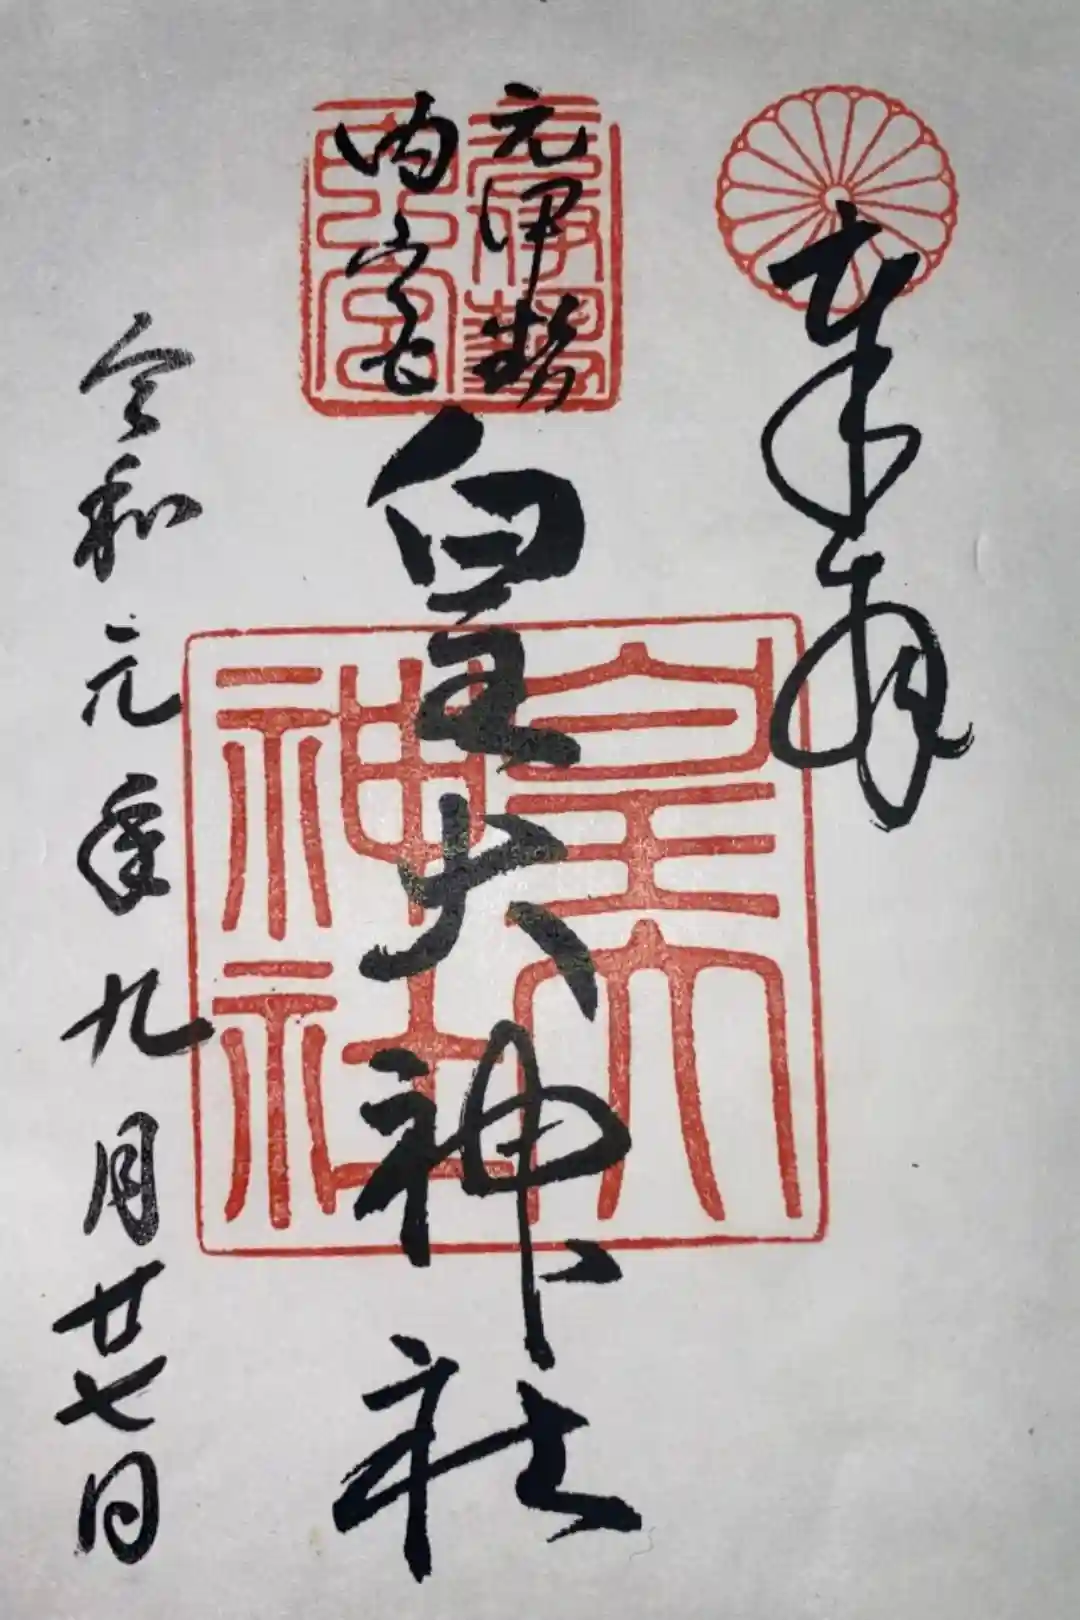 奉拝
元伊勢
内宮
皇大神社
皇大
神社
令和元年九月廿七日